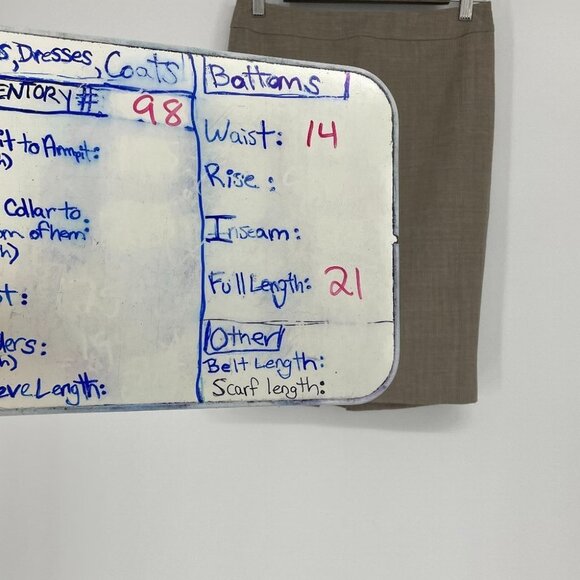 s, Dresses, Coats
ENTORY # 98
it to Armpit:
h)
Collar to
om of hem:
h)
t:
ders:
h)
eve Length:
Bottoms
Waist: 14
Rise:
Inseam:
Full Length: 21
Other
Belt Length:
Scarf length: